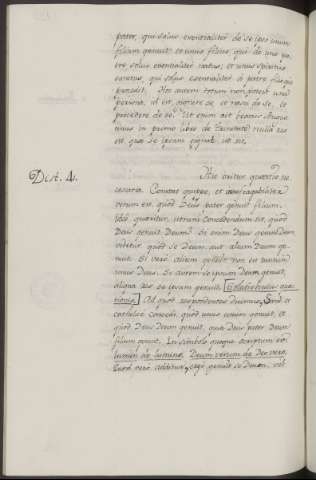 pater, qui solus essentialiter de se ipso unum
filium genuit: et unus filius, qui de uno pa-
tre solus essentialiter natus; et unus spiritus
sanctus, qui solus essentialiter a patre filioque
procedit. Hoc autem totum non potest una
persona, id est, gignere se, et nasci de se, et
procedere de se. Ut enim ait beatus Augus-
tinus in primo libro de Trinitate nulla res
est, quae se ipsam gignat, ut sit.
Dist. 4.
Hic oritur quaestio ne-
cesaria. Constat quippe, et
verum est, quod Deus pater genuit filium.
Ideo quaeritur, utrum concedendum sit, quod
Deus genuit Deum. Si enim Deus genuit Deum
videtur, quod se Deum, aut alium Deum ge-
nuit. Si vero alium genuit non est tantum
unus Deus. Si autem se ipsum Deum genuit,
aliqua res se ipsam genuit.
Ad quod respondentes dicimus, sane et
catholice concedi, quod unus unum genuit, et
quod Deus Deum genuit, quia Deus pater Deum
filium genuit. In simbolo quoque scriptum est
lumen de lumine, Deum verum de Deo vero.
Quod vero additur, ergo genuit se Deum, vel